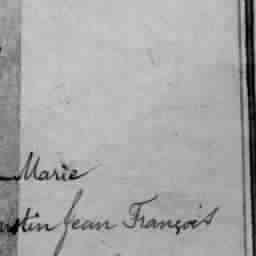 Marie
ustin Jean François